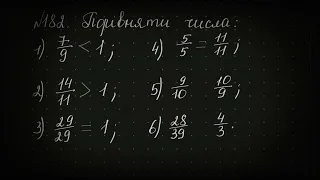 №182. Порівняти числа:
1) 7/9 < 1; 4) 5/5 = 11/11;
2) 14/11 > 1; 5) 9/10 10/9;
3) 29/29 = 1; 6) 28/39 4/3.